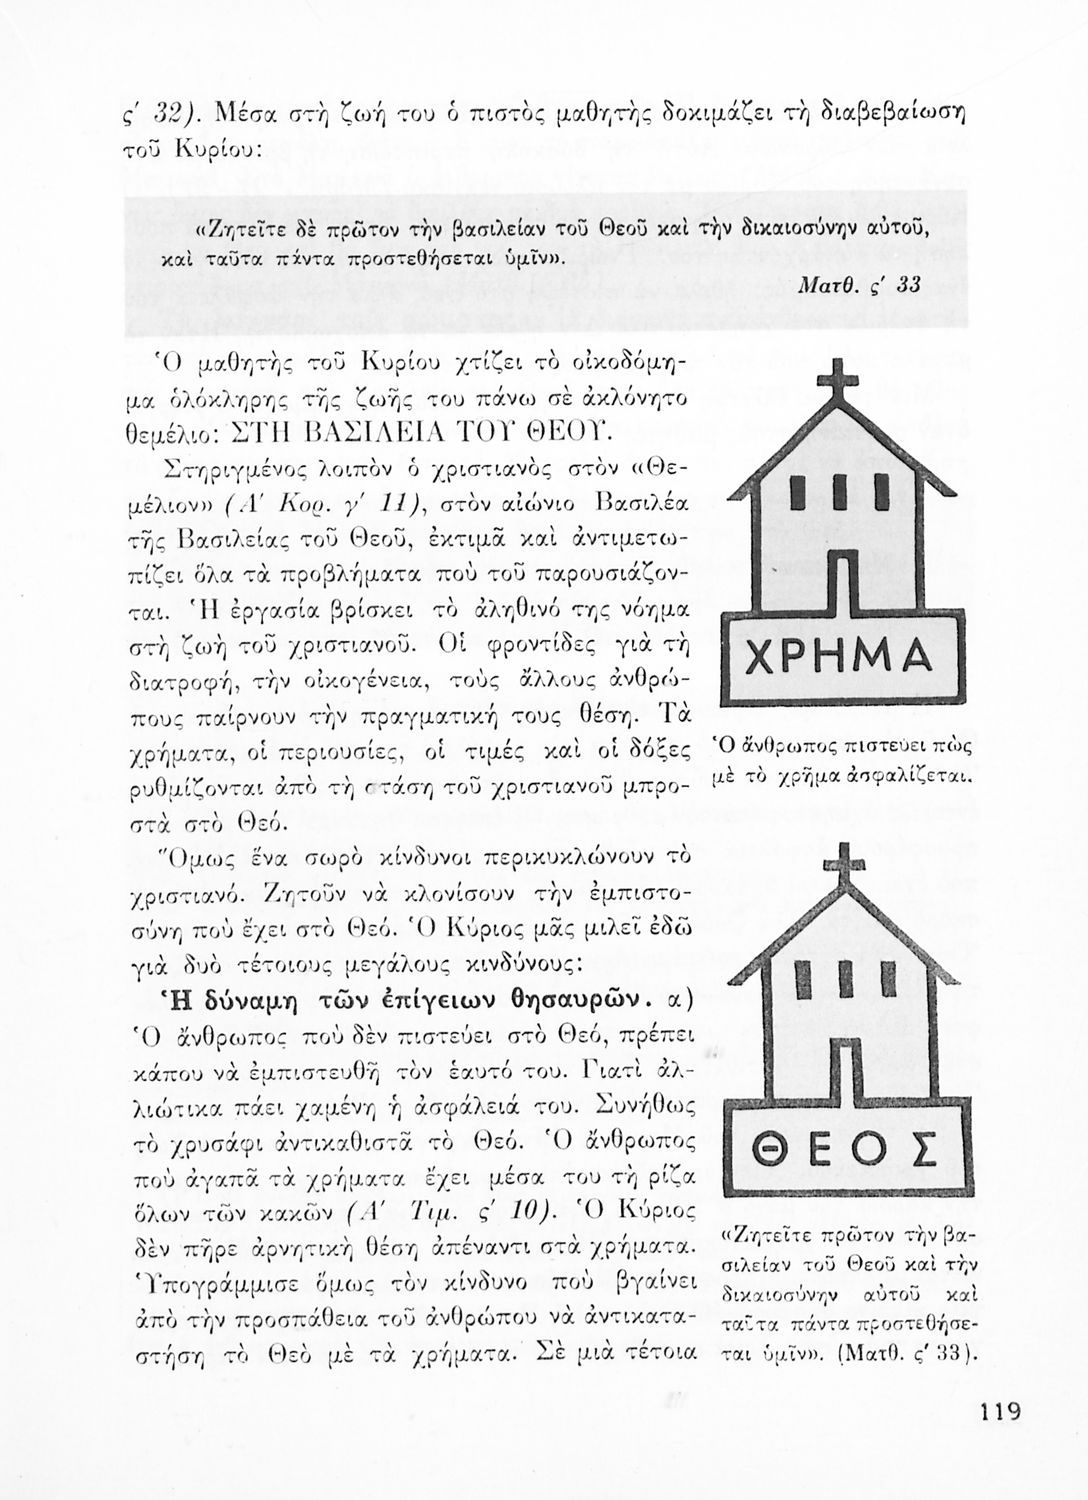 ς' 32). Μέσα στὴ ζωή του ὁ πιστὸς μαθητὴς δοκιμάζει τὴ διαβεβαίωση
τοῦ Κυρίου:
«Ζητεῖτε δὲ πρῶτον τὴν βασιλείαν τοῦ Θεοῦ καὶ τὴν δικαιοσύνην αὐτοῦ,
καὶ ταῦτα πάντα προστεθήσεται ὑμῖν».
Ματθ. ς' 33
Ὁ μαθητὴς τοῦ Κυρίου χτίζει τὸ οἰκοδόμη-
μα ὁλόκληρης τῆς ζωῆς του πάνω σὲ ἀκλόνητο
θεμέλιο: ΣΤΗ ΒΑΣΙΛΕΙΑ ΤΟΥ ΘΕΟΥ.
Στηριγμένος λοιπὸν ὁ χριστιανὸς στὸν «Θε-
μέλιον» (Α' Κορ. γ' 11), στὸν αἰώνιο Βασιλέα
τῆς Βασιλείας τοῦ Θεοῦ, ἐκτιμᾶ καὶ ἀντιμετω-
πίζει ὅλα τὰ προβλήματα ποὺ τοῦ παρουσιάζον-
ται. Ἡ ἐργασία βρίσκει τὸ ἀληθινό της νόημα
στὴ ζωὴ τοῦ χριστιανοῦ. Οἱ φροντίδες γιὰ τὴ
διατροφή, τὴν οἰκογένεια, τοὺς ἄλλους ἀνθρώ-
πους παίρνουν τὴν πραγματική τους θέση. Τὰ
χρήματα, οἱ περιουσίες, οἱ τιμές καὶ οἱ δόξες
ρυθμίζονται ἀπὸ τὴ στάση τοῦ χριστιανοῦ μπρο-
στὰ στὸ Θεό.
Ὅμως ἕνα σωρὸ κίνδυνοι περικυκλώνουν τὸ
χριστιανό. Ζητοῦν νὰ κλονίσουν τὴν ἐμπιστο-
σύνη ποὺ ἔχει στὸ Θεό. Ὁ Κύριος μᾶς μιλεῖ ἐδῶ
γιὰ δυὸ τέτοιους μεγάλους κινδύνους:
Ἡ δύναμη τῶν ἐπίγειων θησαυρῶν. α)
Ὁ ἄνθρωπος ποὺ δὲν πιστεύει στὸ Θεό, πρέπει
κάπου νὰ ἐμπιστευθῆ τὸν ἑαυτό του. Γιατὶ ἀλ-
λιώτικα πάει χαμένη ἡ ἀσφάλειά του. Συνήθως
τὸ χρυσάφι ἀντικαθιστᾶ τὸ Θεό. Ὁ ἄνθρωπος
ποὺ ἀγαπᾶ τὰ χρήματα ἔχει μέσα του τὴ ρίζα
ὅλων τῶν κακῶν (Α' Τιμ. ς' 10). Ὁ Κύριος
δὲν πῆρε ἀρνητικὴ θέση ἀπέναντι στὰ χρήματα.
Ὑπογράμμισε ὅμως τὸν κίνδυνο ποὺ βγαίνει
ἀπὸ τὴν προσπάθεια τοῦ ἀνθρώπου νὰ ἀντικατα-
στήση τὸ Θεὸ μὲ τὰ χρήματα. Σὲ μιὰ τέτοια
ΧΡΗΜΑ
Ὁ ἄνθρωπος πιστεύει πὼς
μὲ τὸ χρῆμα ἀσφαλίζεται.
ΘΕΟΣ
«Ζητεῖτε πρῶτον τὴν βα-
σιλείαν τοῦ Θεοῦ καὶ τὴν
δικαιοσύνην αὐτοῦ καὶ
ταῦτα πάντα προστεθήσε-
ται ὑμῖν». (Ματθ. ς' 33).
119